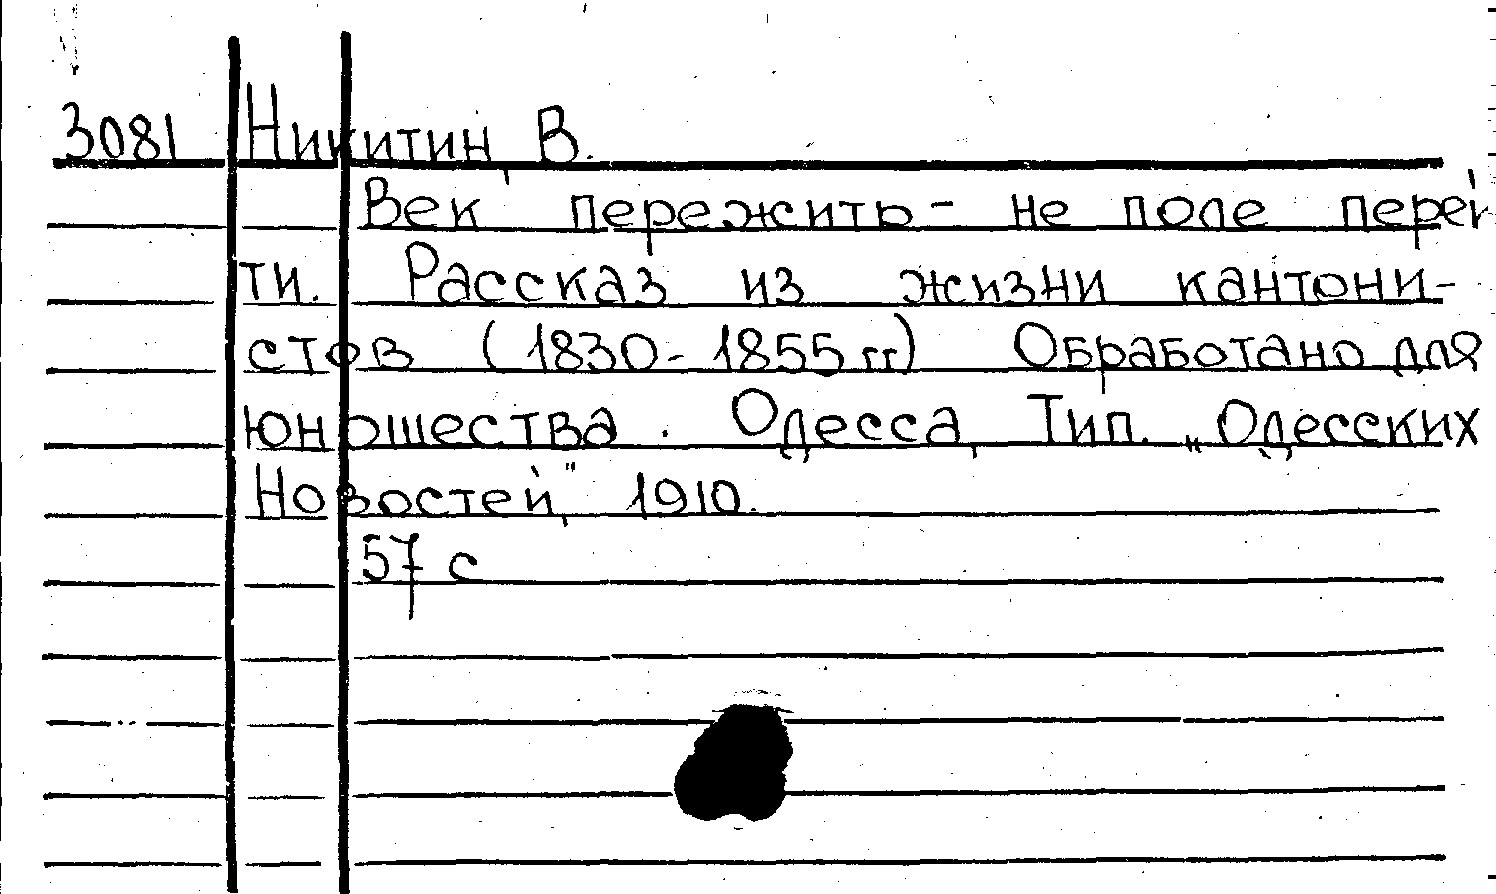 3081 Никитин, В.
Век пережить - не поле перей
ти. Рассказ из жизни кантони-
стов (1830 - 1855 гг) Обработано для
юношества. Одесса, Тип. „Одесских
Новостей", 1910.
57 с